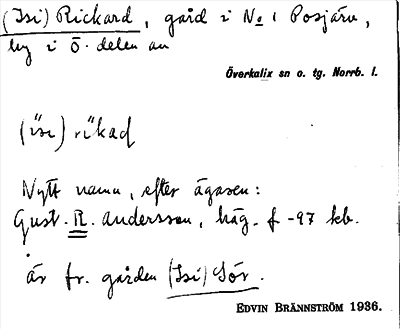 (Isi) Rickard, gård i No 1 Posjärv,
by i ö. delen av
Överkalix sn o. tg. Norrb. l.
(isi) rikad
Nytt namn, efter ägaren:
Gust. R. Andersson, häg. f -97 kb.
är fr. gården (Isi) Sör.
EDVIN BRÄNNSTRÖM 1936.